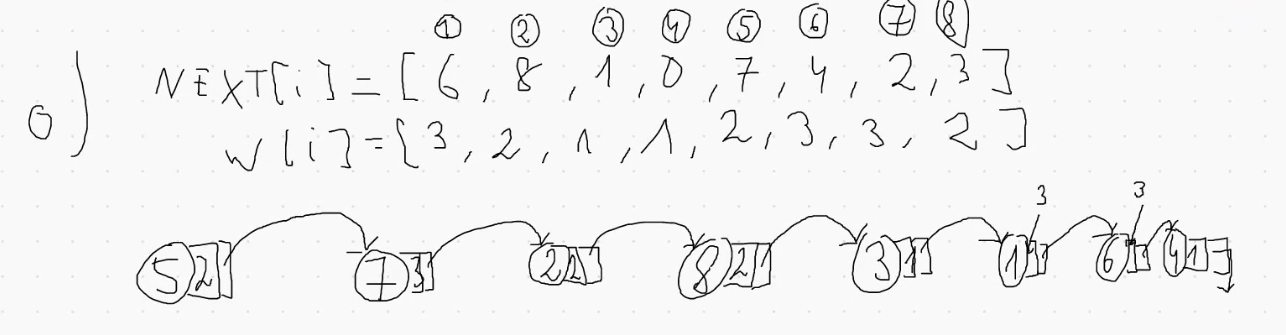 ① ② ③ ④ ⑤ ⑥ ⑦ ⑧
0) NEXT[i] = [6, 8, 1, 0, 7, 4, 2, 3]
W[i] = [3, 2, 1, 1, 2, 3, 3, 2]
3 3
⑤ 2 ⑦ 3 ② 2 ⑧ 2 ③ 1 ① ⑥ ④ 1